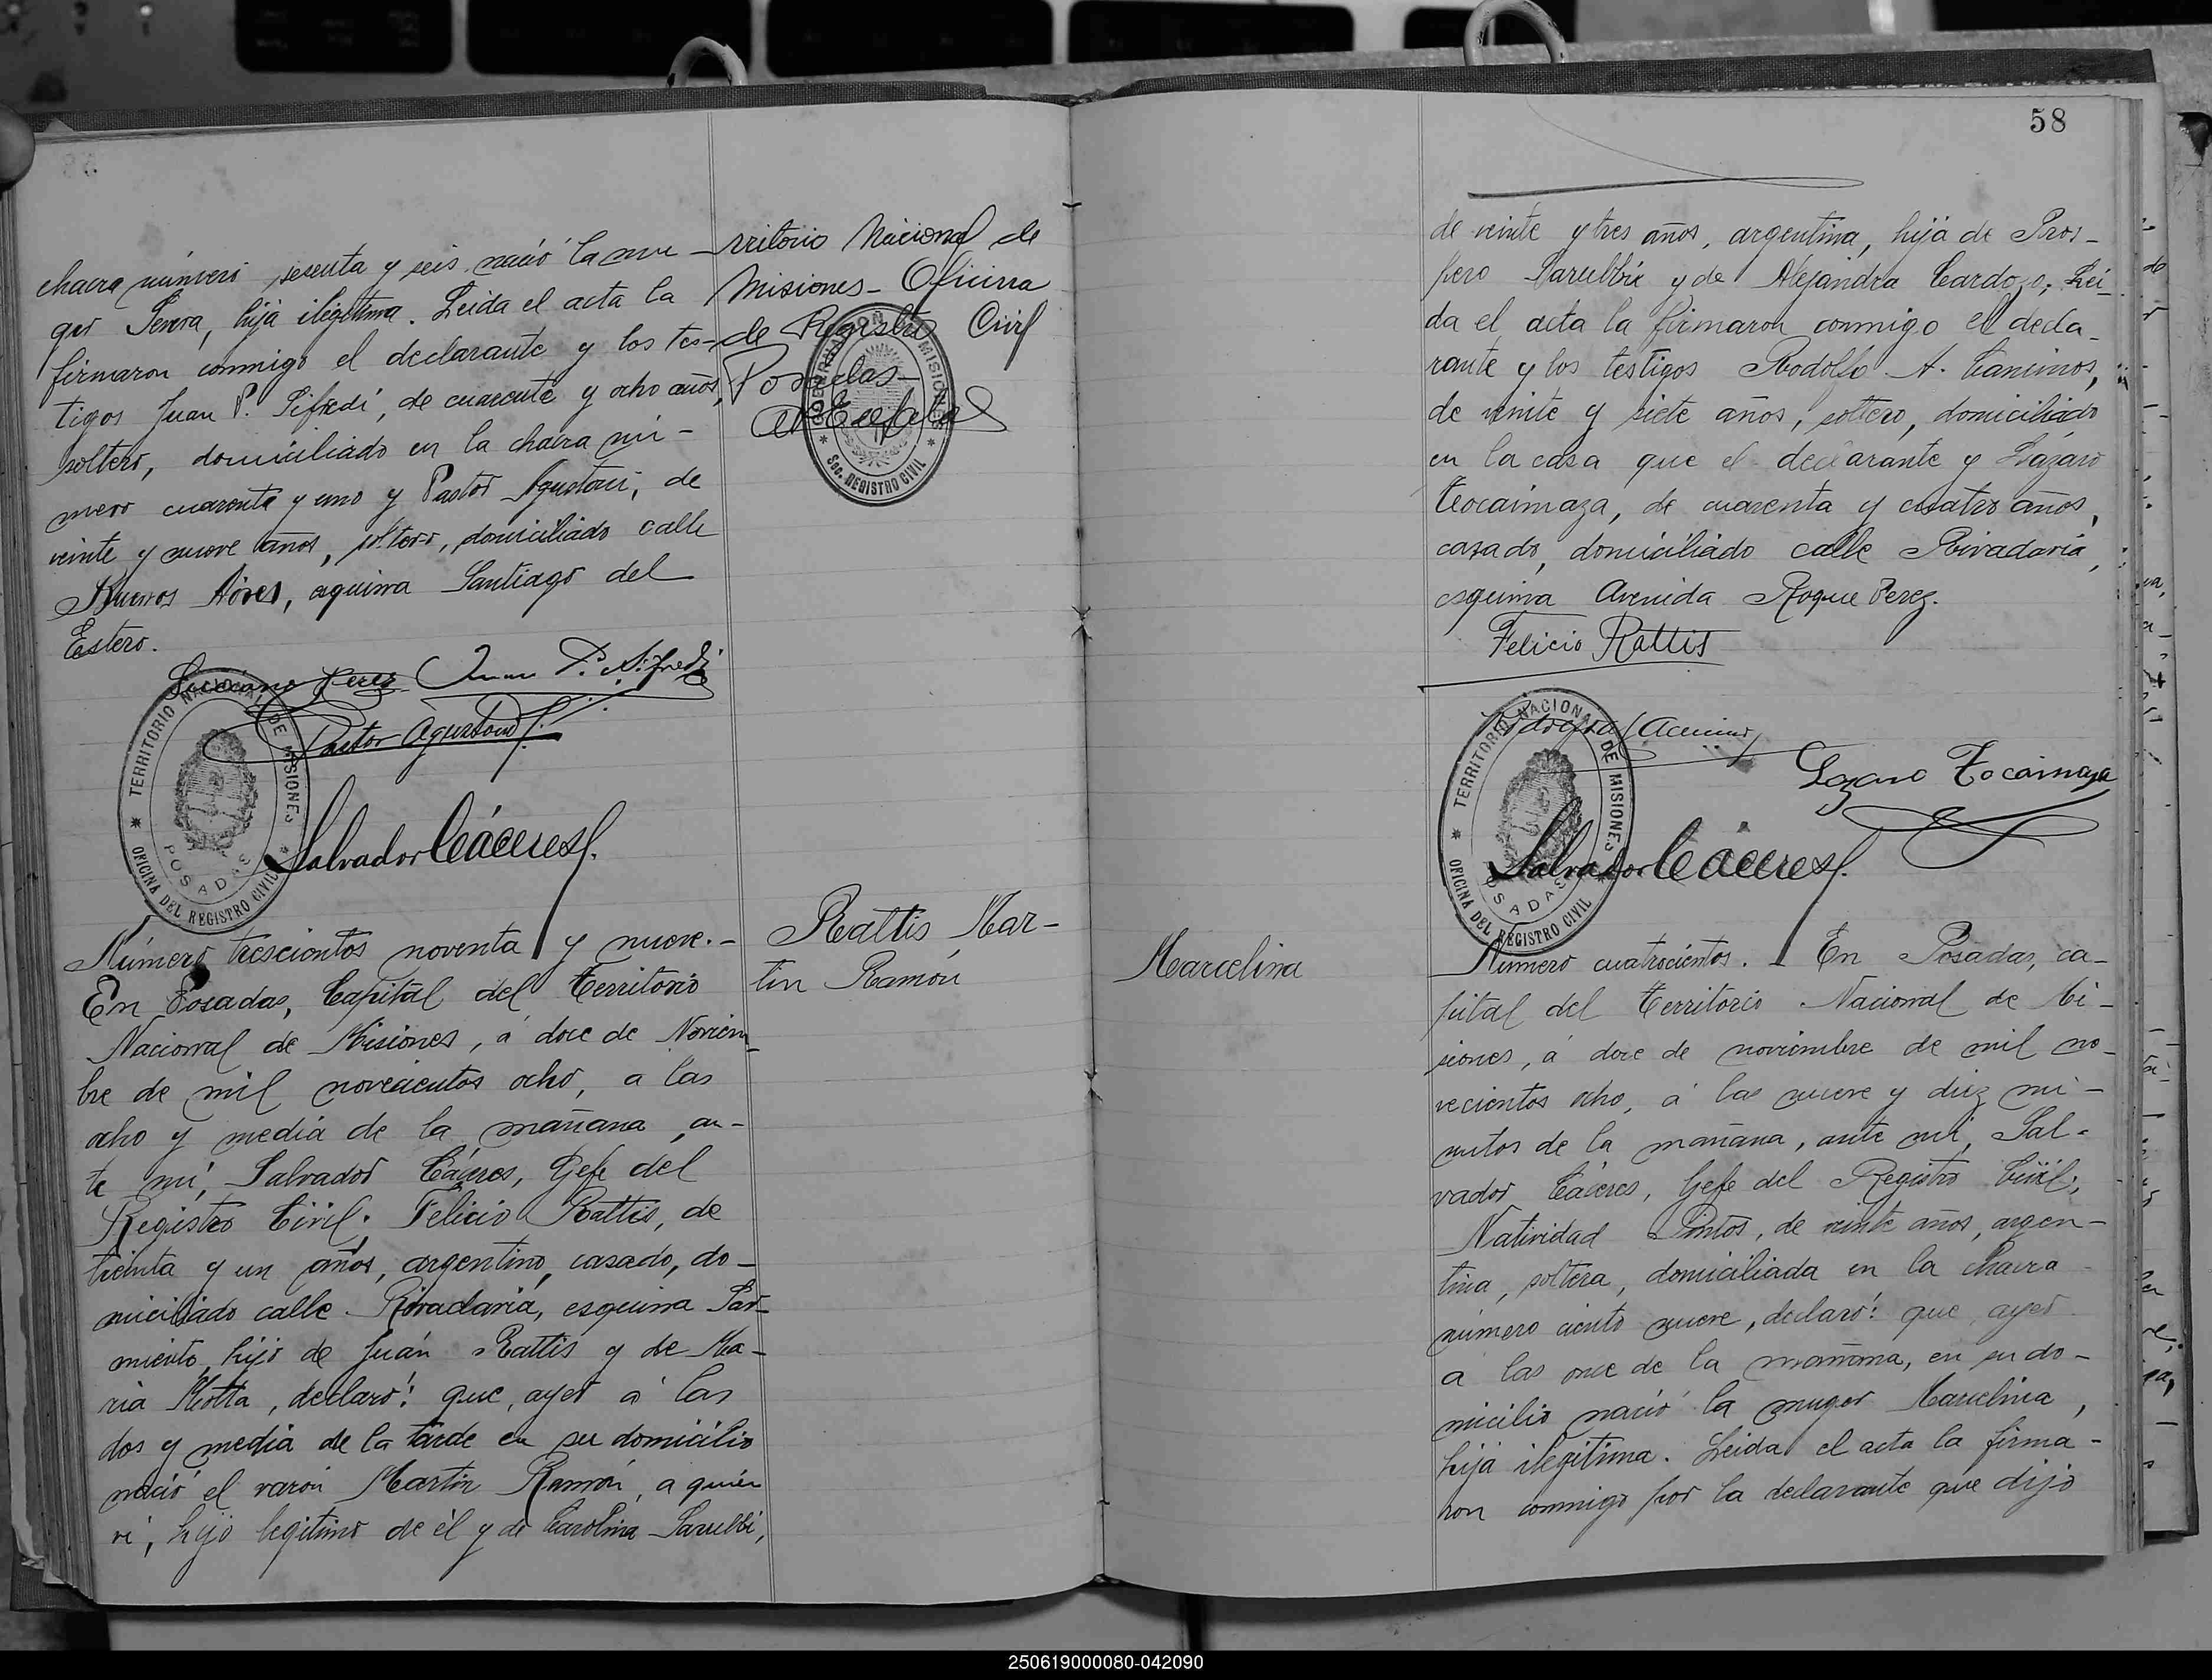 chacra número sesenta y seis nació la mu-
ger Severa, hija ilegitima. Leida el acta la
firmaron conmigo el declarante y los tes-
tigos Juan P. Sifredi, de cuarenta y ocho años,
soltero, domiciliado en la chacra nú-
mero cuarenta y uno y Pastor Agustoni, de
veinte y nueve años, soltero, domiciliado calle
Buenos Aires, esquina Santiago del
Estero.
Perez Juan P. Sifredi
Pastor Agustoni
TERRITORIO NACIONAL DE MISIONES
OFICINA DEL REGISTRO CIVIL
POSADAS
Salvador Cáceres
rritorio Nacional de
Misiones - Oficina
de Registro Civil
Posadas -
GOBERNACION MISIONES
Sec. REGISTRO CIVIL
Número trescientos noventa y nueve.-
En Posadas, Capital del Territorio
Nacional de Misiones, á doce de Noviem-
bre de mil novecientos ocho, a las
ocho y media de la mañana, an-
te mí, Salvador Cáceres, Gefe del
Registro Civil; Felicio Rattis, de
treinta y un años, argentino, casado, do-
miciliado calle Rivadavia, esquina Sar-
miento, hijo de Juán Rattis y de Ma-
ria Motta, declaró: que, ayer á las
dos y media de la tarde en su domicilio
nació el varón Martin Ramón, a quién
ví, hijo legitimo de él y de Carolina Sarubbi,
Rattis Mar-
tin Ramón
58
de veinte y tres años, argentina, hija de Pros-
pero Sarubbi y de Alejandra Cardozo; Lei-
da el acta la firmaron conmigo el decla-
rante y los testigos Rodolfo A. Caminos,
de veinte y siete años, soltero, domiciliado
en la casa que el declarante y Lázaro
Tocaimaza, de cuarenta y cuatro años,
casado, domiciliado calle Rivadavia,
esquina Avenida Roque Perez.
Felicio Rattis
TERRITORIO NACIONAL DE MISIONES
OFICINA DEL REGISTRO CIVIL
POSADAS
Lazaro Tocaimaza
Salvador Cáceres
Marcelina
Número cuatrocientos. - En Posadas, ca-
pital del Territorio Nacional de Mi-
siones, á doce de noviembre de mil no-
vecientos ocho, á las nueve y diez mi-
nutos de la mañana, ante mí, Sal-
vador Cáceres, Gefe del Registro Civil;
Natividad Pintos, de veinte años, argen-
tina, soltera, domiciliada en la chacra
número ciento nueve, declaró: que ayer
a las once de la mañana, en su do-
micilio nació la muger Marcelina,
hija ilegitima. Leida el acta la firma-
ron conmigo por la declarante que dijo
250619000080-042090